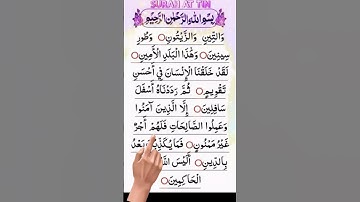 SURAH AT TIN
بِسْمِ اللّٰهِ الرَّحْمٰنِ الرَّحِيْمِ
وَالتِّينِ وَالزَّيْتُونِ وَطُورِ
سِينِينَ وَهَٰذَا الْبَلَدِ الْأَمِينِ
لَقَدْ خَلَقْنَا الْإِنْسَانَ فِي أَحْسَنِ
تَقْوِيمٍ ثُمَّ رَدَدْنَاهُ أَسْفَلَ
سَافِلِينَ إِلَّا الَّذِينَ آمَنُوا
وَعَمِلُوا الصَّالِحَاتِ فَلَهُمْ أَجْرٌ
غَيْرُ مَمْنُونٍ فَمَا يُكَذِّبُكَ بَعْدُ
بِالدِّينِ أَلَيْسَ
الْحَاكِمِينَ